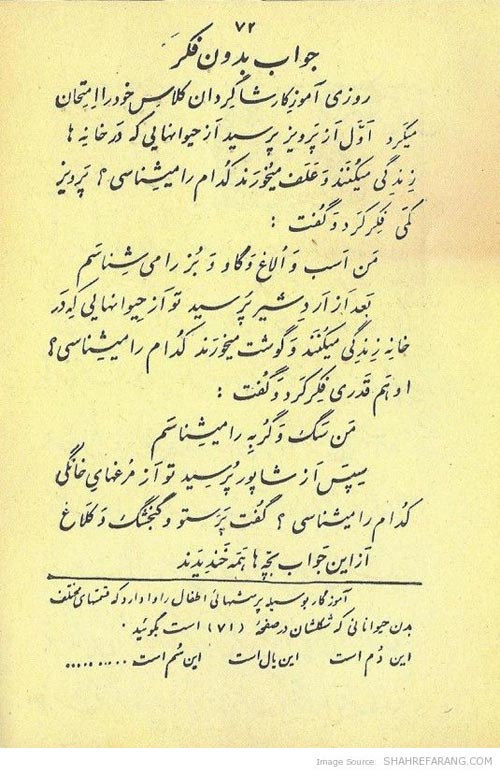 ۷۲
جواب بدون فکر
روزی آموزگار شاگردان کلاس خود را امتحان
میکرد اَوَّل از پَرویز پرسید اَز حیوانهایی که دَر خانه ها
زِندِگی میکُنَند وَ عَلَف میخُورَند کدام را میشِناسی؟ پَرویز
کَمی فِکر کَرد وَ گُفت :
مَن اَسب وَ اُلاغ وَ گاو وَ بُز را می شِناسَم
بَعد اَز اَردِشیر پُرسید تو اَز حِیوانهایی که دَر
خانه زِندِگی میکُنَند وَ گوشت میخورَند کُدام را میشِناسی؟
او هَم قَدری فِکر کَرد وَ گُفت :
مَن سَگ وَ گُربِه را میشِناسَم
سِپَس اَز شاپور پُرسید تو اَز مُرغهای خانِگی
کُدام را میشِناسی؟ گُفت پَرَستو وَ گُنجِشگ وَ کَلاغ
اَز این جَواب بَچّه ها هَمه خَندیدَند
آموزگار بوسیله پرسشهائی اطفال را وادارد که قسمتهای مختلف
بدن حیواناتی که شکلشان در صفحهٔ (۷۱) است بگویند .
این دُم است این بال است این سُم است ..........
Image Source: SHAHREFARANG.COM